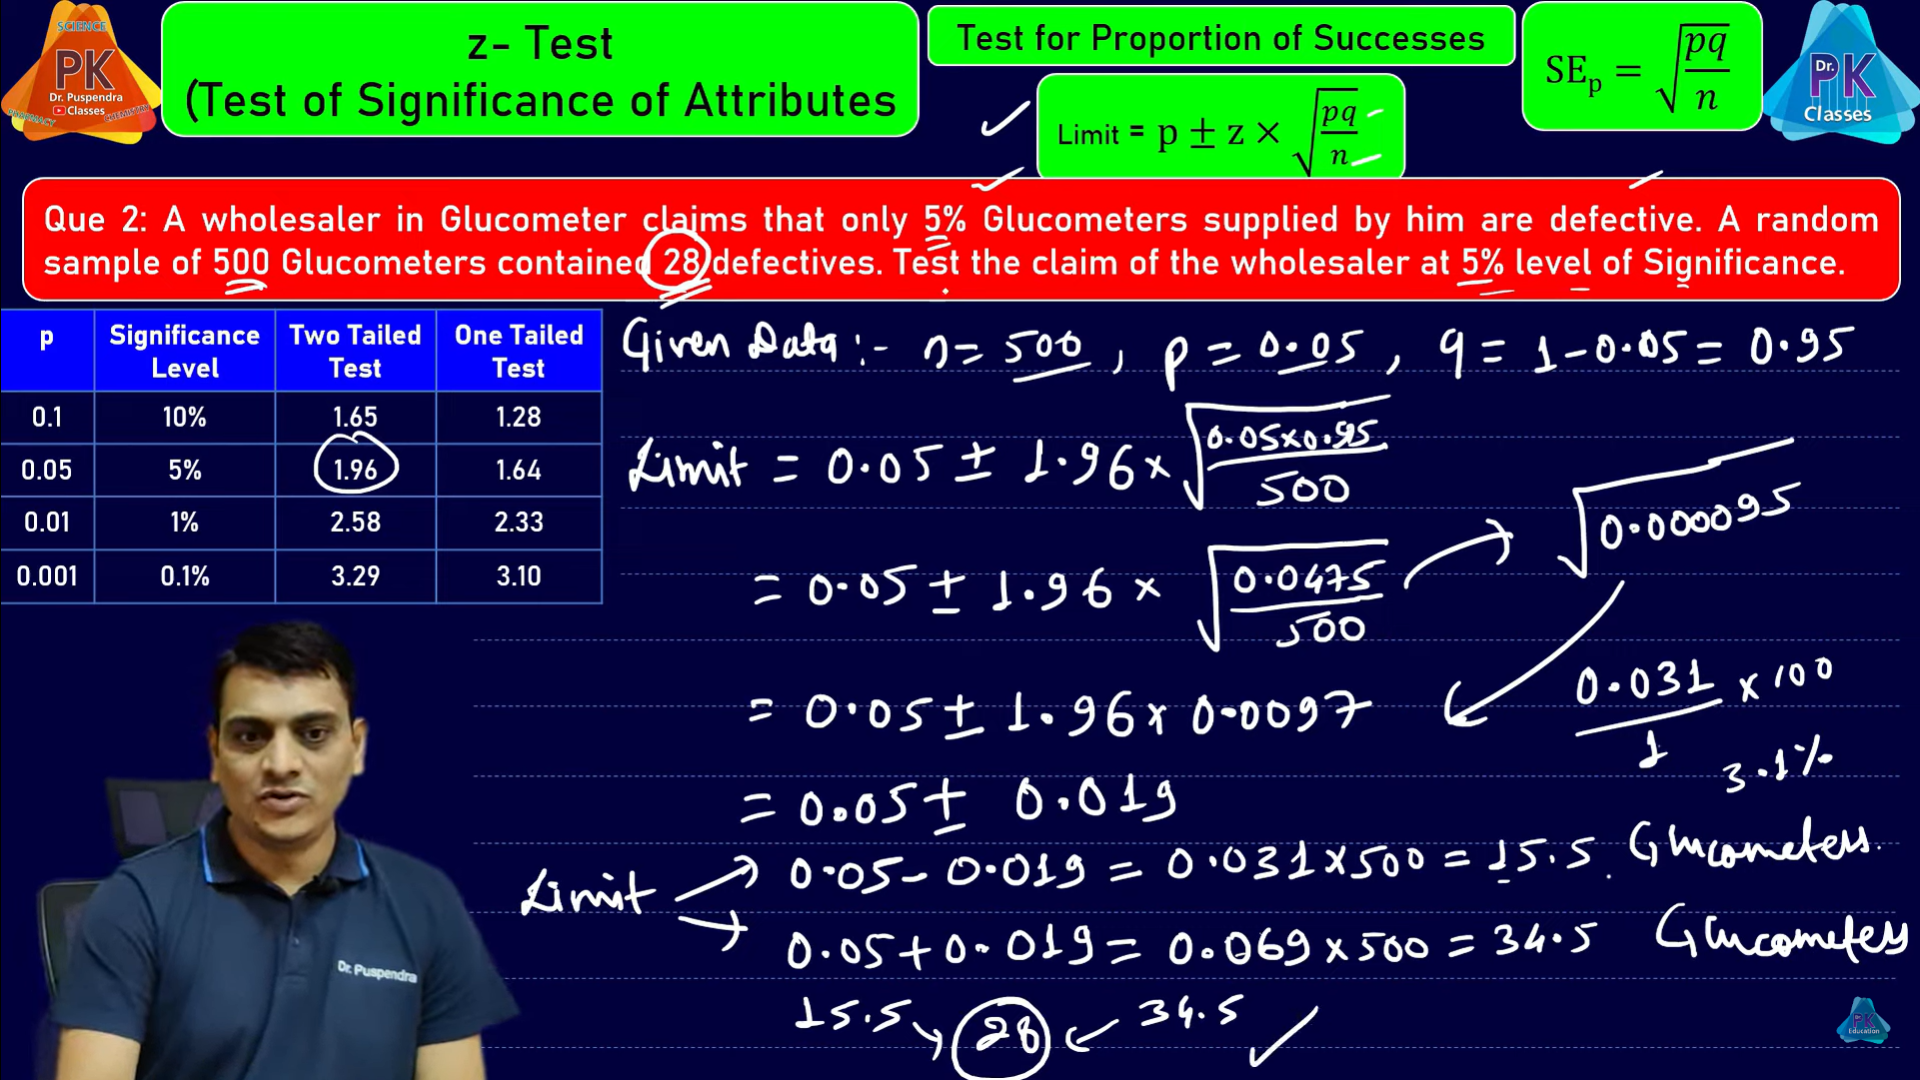 SCIENCE
PK
Dr. Puspendra
Classes
PHARMACY
CHEMISTRY
z- Test
(Test of Significance of Attributes
Test for Proportion of Successes
Limit = p ± z × √(pq/n)
SEp = √(pq/n)
Dr.
PK
Classes
Que 2: A wholesaler in Glucometer claims that only 5% Glucometers supplied by him are defective. A random
sample of 500 Glucometers contained 28 defectives. Test the claim of the wholesaler at 5% level of Significance.
p Significance Level Two Tailed Test One Tailed Test
0.1 10% 1.65 1.28
0.05 5% 1.96 1.64
0.01 1% 2.58 2.33
0.001 0.1% 3.29 3.10
Given Data:- n = 500, p = 0.05, q = 1-0.05 = 0.95
Limit = 0.05 ± 1.96 × √(0.05×0.95/500)
= 0.05 ± 1.96 × √(0.0475/500)
√0.000095
= 0.05 ± 1.96 × 0.0097
0.031/1 × 100
3.1%
= 0.05 ± 0.019
Limit
0.05 - 0.019 = 0.031 × 500 = 15.5. Glucometers.
0.05 + 0.019 = 0.069 × 500 = 34.5 Glucometers
15.5 28 34.5
Dr. Puspendra
PK
Education